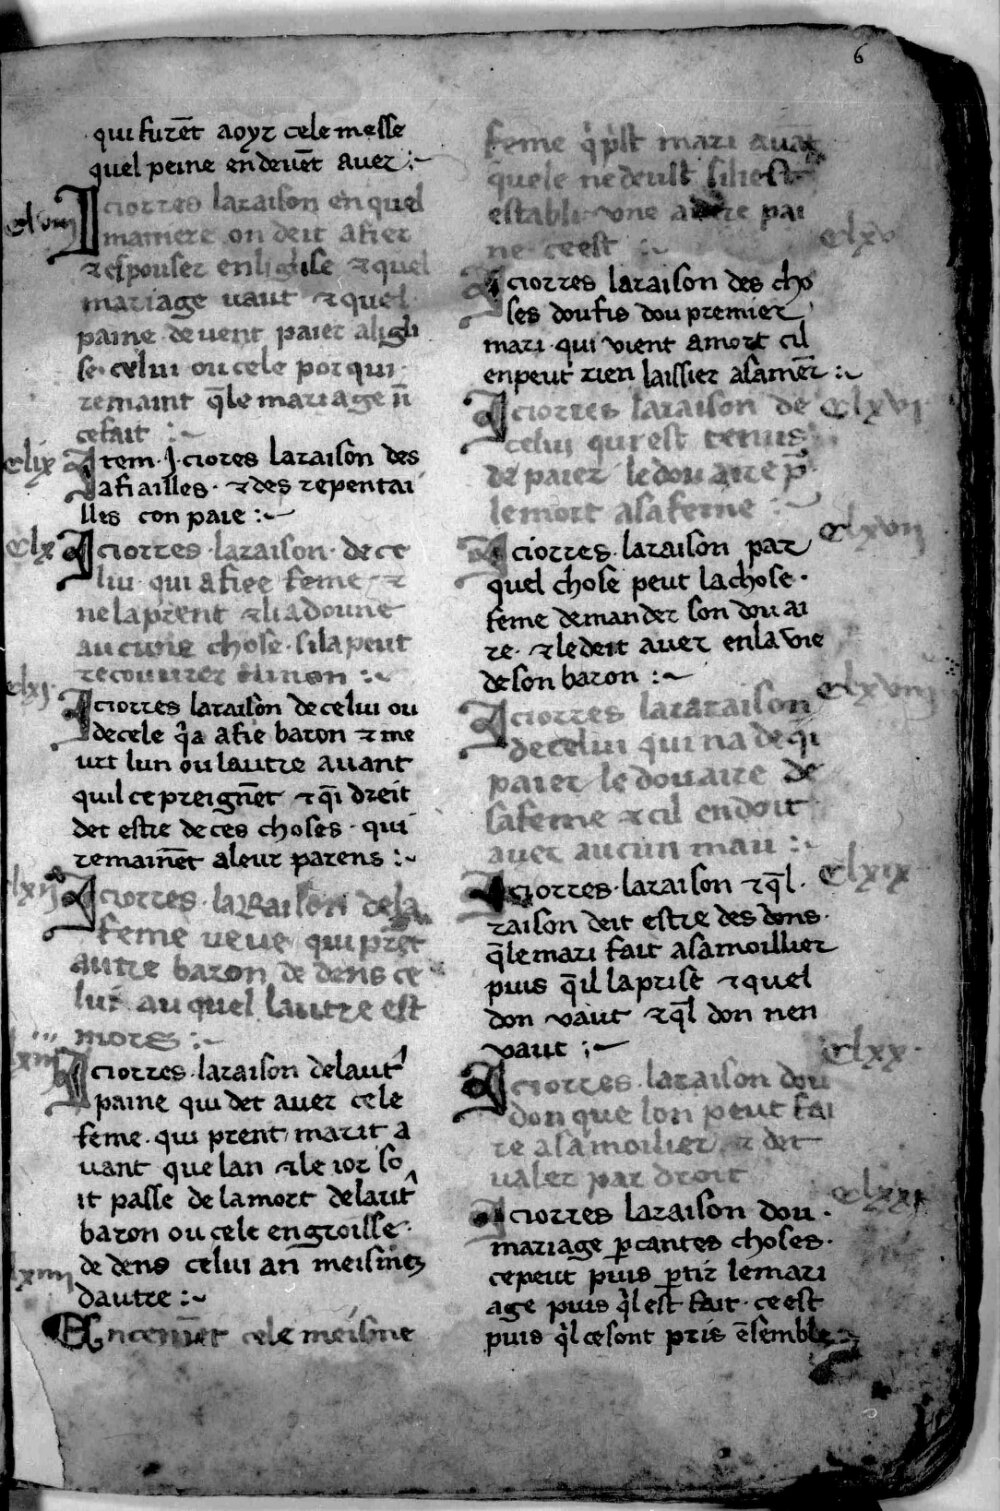 6
qui furēt a oyr cele messe
quel peine en devēt aver :~
clviii
I ci orres la raison en quel
maniere on deit afier
⁊ espouser en liglise ⁊ quel
mariage vaut ⁊ quel
paine devent paier a ligli
se celui ou cele por qui
remaint q̄ le mariage n̄
ce fait :~
clix
Item · J · ci ores la raison des
afiailles · ⁊ des repentai
lles con paie :~
clx
I ci orres · la raison · de ce
lui · qui afiee feme · ⁊
ne la prent ⁊ li a donne
aucune chose · si la peut
recouvrer ou non :~
clxi
I ci orres la raison de celui ou
de cele q̇ a afie baron ⁊ me
urt lun ou lautre avant
quil ce preignēt ⁊ q̄i dreit
det estre de ces choses · qui
remainēt a leur parens :~
lxii
I ci orres · la Raison de la
feme veve qui prēt
autre baron de dens ce
lui au quel lautre est
mors :~
lxiii
I ci orres · la raison de laut'
paine qui det aver cele
feme · qui prent marit a
vant que lan ⁊ le ior so
it passe de la mort de laut'
baron ou cele engroisse ·
de dens celui an meismes
dautre :~
lxiiii
En cemēt cele meisme
feme q̇ p̄st mari avāt
quele ne deust si li est
establi une autre pai
ne ce est :~
clxv
I ci orres la raison des cho
ses dou fis dou premier
mari · qui vient a mort cil
en peut rien laissier a sa mer̄ :~
clxvi
I ci orres la raison de
celui qui est tenus
de paier le douaire p̄
le mort a sa feme :~
clxvii
I ci orres · la raison par
quel chose peut la chose ·
feme demander son douai
re · ⁊ le deit aver en la vie
de son baron :~
clxviii
I ci orres la raraison
de celui qui na de q̇i
paier le douaire de
sa feme ⁊ cil en doit
aver aucun mau :~
clxix
I ci orres · la raison ⁊ q̄l ·
raison deit estre des dons ·
q̄ le mari fait a sa moillier
puis q̄ il la prise ⁊ quel
don vaut ⁊ q̄l don nen
vaut :~
clxx ·
I ci orres · la raison dou
don que lon peut fai
re a sa moilier ⁊ det
valer par droit
clxxi
I ci orres la raison dou ·
mariage ꝑ cantes choses ·
ce peut puis ꝑtir le mari
age puis q̇l est fait · ce est
puis q̇l ce sont pris ēsemble